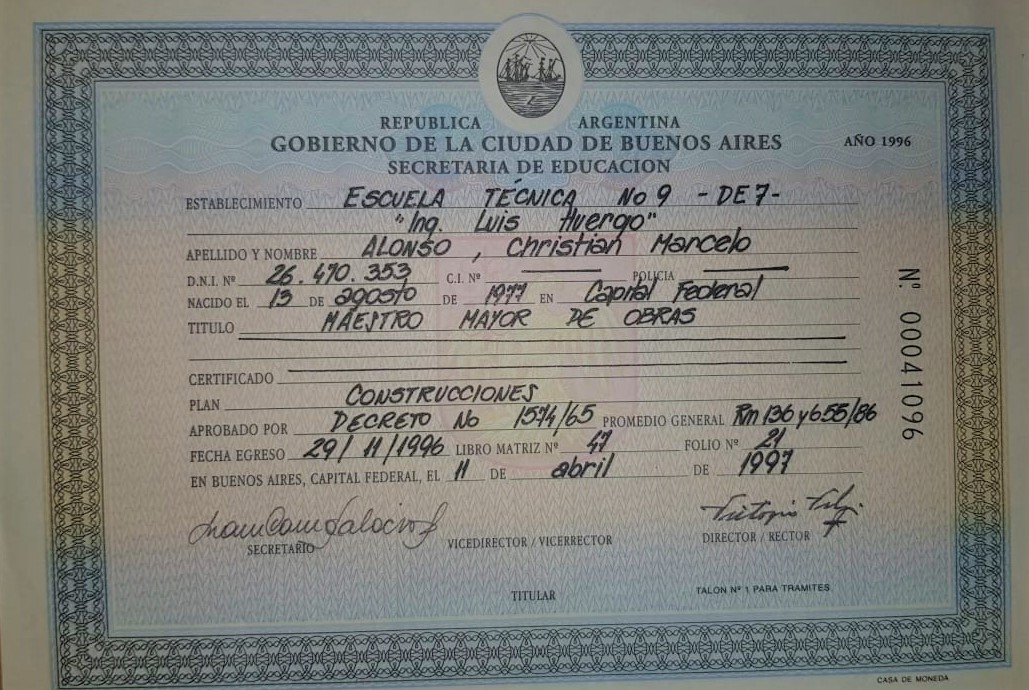 REPUBLICA ARGENTINA
GOBIERNO DE LA CIUDAD DE BUENOS AIRES
AÑO 1996
SECRETARIA DE EDUCACION
ESTABLECIMIENTO ESCUELA TÉCNICA No 9 - DE 7 -
"Ing. Luis Huergo"
APELLIDO Y NOMBRE ALONSO, Christian Marcelo
D.N.I. Nº 26.470.353 C.I. Nº POLICIA
NACIDO EL 13 DE agosto DE 1977 EN Capital Federal
TITULO MAESTRO MAYOR DE OBRAS
CERTIFICADO
PLAN CONSTRUCCIONES
APROBADO POR DECRETO No 1574/65 PROMEDIO GENERAL Rm 136 y 655/86
FECHA EGRESO 29/11/1996 LIBRO MATRIZ Nº 47 FOLIO Nº 21
EN BUENOS AIRES, CAPITAL FEDERAL, EL 11 DE abril DE 1997
SECRETARIO
VICEDIRECTOR / VICERRECTOR
DIRECTOR / RECTOR
TITULAR
TALON Nº 1 PARA TRAMITES
Nº 00041096
CASA DE MONEDA